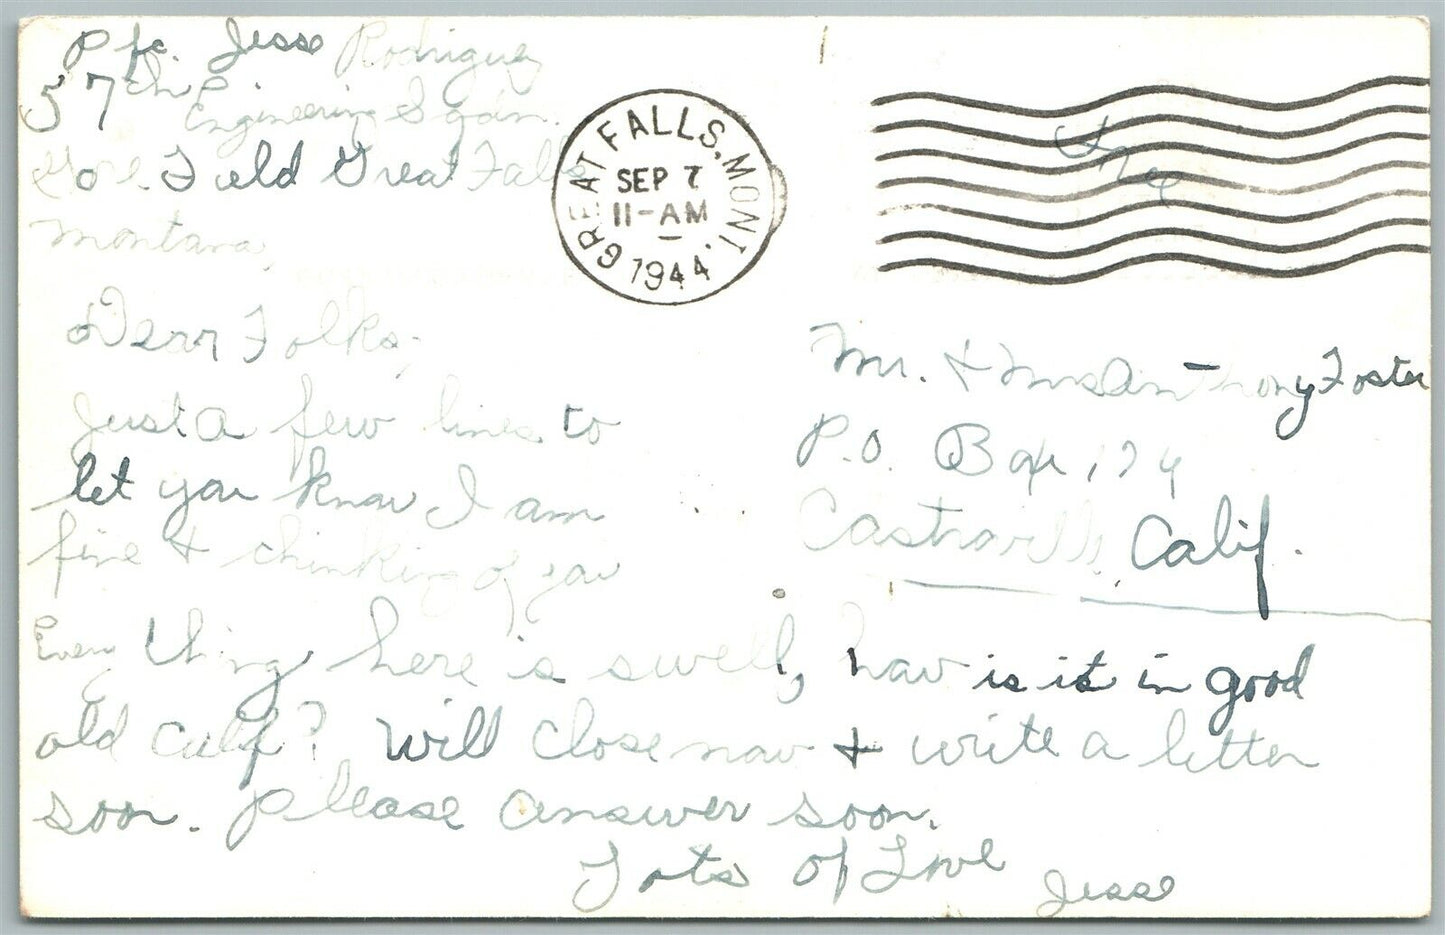 Pfc. Jesse Rodriguez
57th Engineering Sqdrn.
Gore Field Great Falls
Montana,
GREAT FALLS, MONT.
SEP 7
11-AM
1944
Free
Dear Folks,
Just a few lines to
let you know I am
fine & thinking of you
Every thing here is swell, how is it in good
old Calif? Will close now & write a letter
soon. Please answer soon.
Lots of Love
Jesse
Mr. & Mrs Anthony Foster
P.O. Box 174
Castroville, Calif.